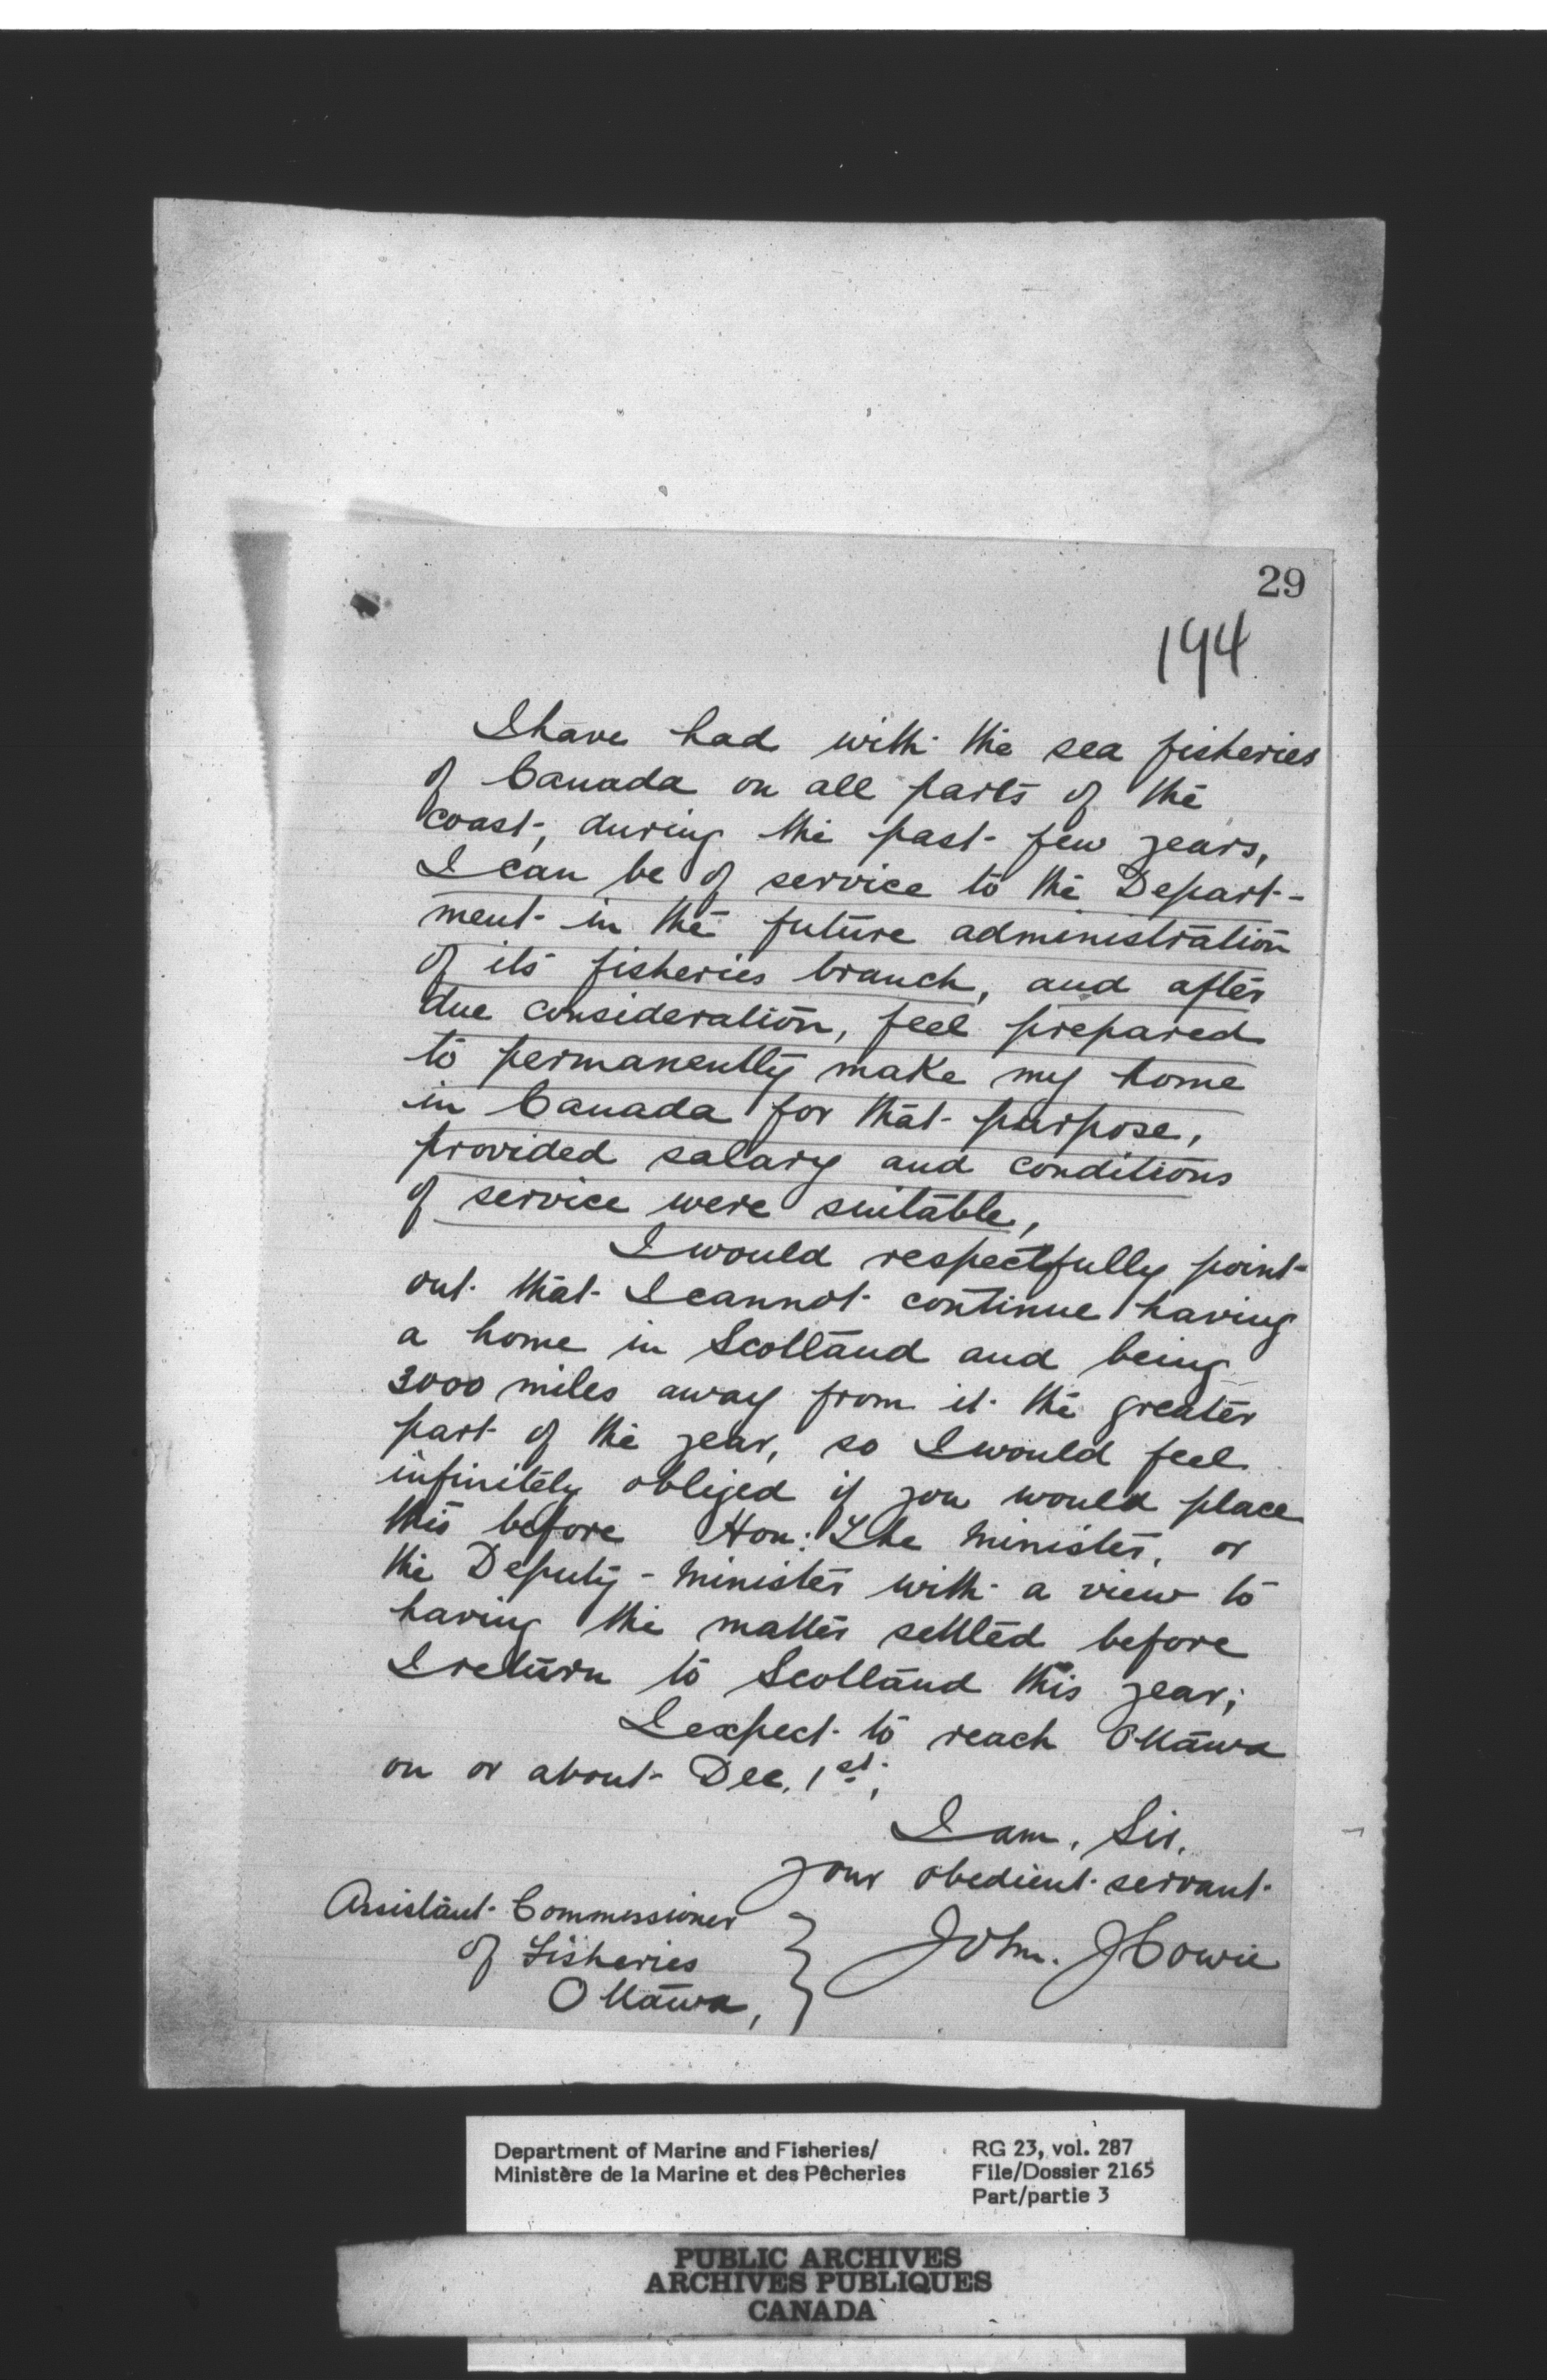 29
194
I have had with the sea fisheries
of Canada on all parts of the
coast, during the past few years,
I can be of service to the Depart-
ment in the future administration
of its fisheries branch, and after
due consideration, feel prepared
to permanently make my home
in Canada for that purpose,
provided salary and conditions
of service were suitable,
I would respectfully point
out that I cannot continue having
a home in Scotland and being
3000 miles away from it the greater
part of the year, so I would feel
infinitely obliged if you would place
this before Hon: The Minister, or
the Deputy-Minister with a view to
having the matter settled before
I return to Scotland this year;
I expect to reach Ottawa
on or about Dec. 1st,
I am, Sir,
your obedient servant
Assistant Commissioner
of Fisheries
Ottawa,
John. J Cowie
Department of Marine and Fisheries/
Ministère de la Marine et des Pêcheries
RG 23, vol. 287
File/Dossier 2165
Part/partie 3
PUBLIC ARCHIVES
ARCHIVES PUBLIQUES
CANADA